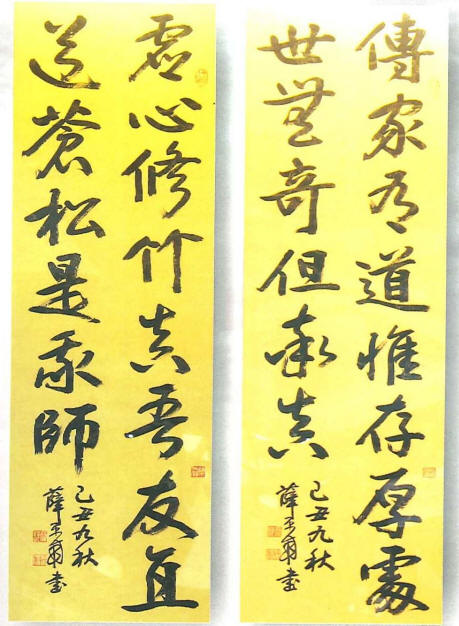 傳家有道惟存厚處
世無奇但率真
己丑九秋
薛書
虛心修竹真吾友直
道蒼松是我師
己丑九秋
薛書